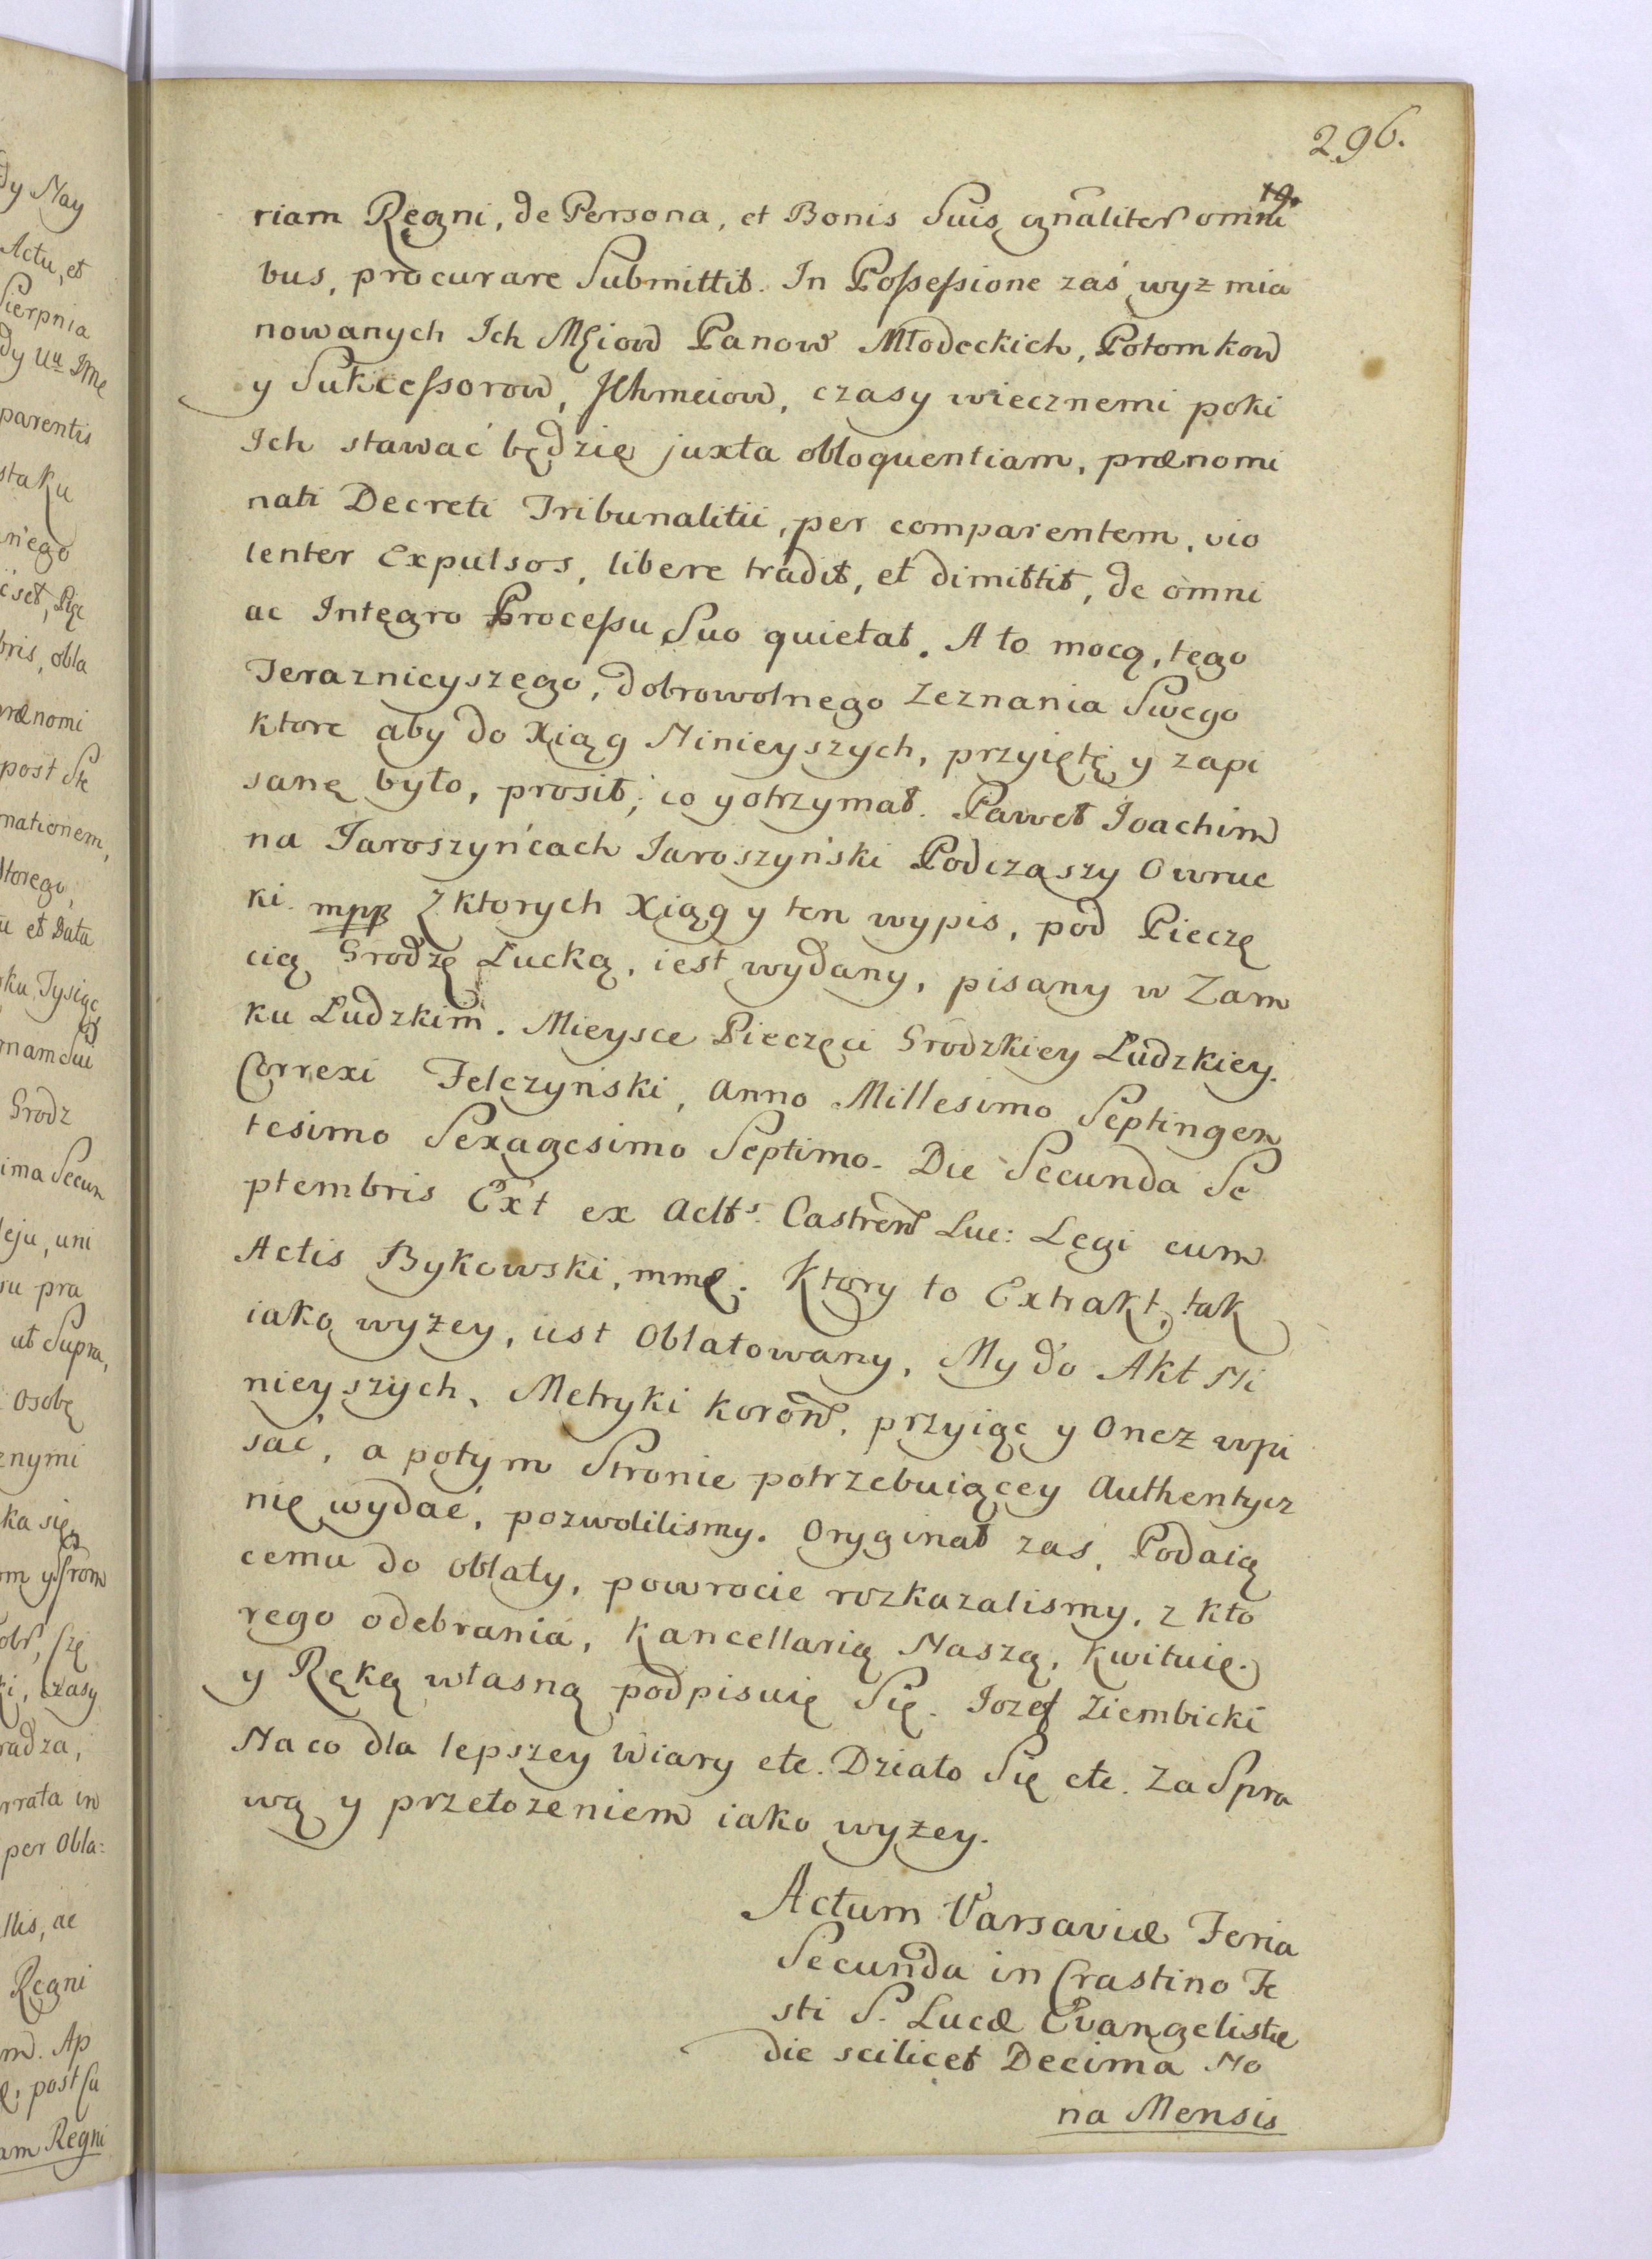 296.
riam Regni, de Persona, et Bonis Suis gñaliter omni
bus, procurare Submittit. In Possessione zaś wyz mia
nowanych Ich Mciow Panow Młodeckich, Potomkow
y Sukcessorow, Jchmciow, czasy wiecznemi poki
Ich stawać będzie juxta obloquentiam, prænomi
nati Decreti Tribunalitii, per comparentem, vio
lenter Expulsos, libere tradit, et dimittit, de omni
ac Integro Processu Suo quietat. A to mocą, tego
Teraznieyszego, dobrowolnego Zeznania Swego
ktore aby do Xiąg Ninieyszych, przyięte y zapi
sane było, prosił; co y otrzymał. Paweł Joachim
na Jaroszyńcach Jaroszyński Podczaszy Owruc
ki. mpp Z ktorych Xiąg y ten wypis, pod Pieczę
cią Grodzę Łucką, iest wydany, pisany w Zam
ku Łudzkim. Mieysce Pieczęci Grodzkiey Łudzkiey.
Correxi Felczyński, Anno Millesimo Septingen
tesimo Sexagesimo Septimo. Die Secunda Se
ptembris Ext ex Actis Castren Luc: Legi cum
Actis Bykowski, mmę. Ktory to Extrakt, tak
iako wyżey, iest Oblatowany, My do Akt Ni
nieyszych, Metryki koron, przyiąc y Onez wpi
sać, a potym Stronie potrzebuiącey Authentycz
nie wydać, pozwolilismy. Oryginał zas, Podaią
cemu do oblaty, powrocic rozkazalismy, z kto
rego odebrania, Kancellarią Naszą, kwituię.
y Ręką własną podpisuię Się. Jozef Ziembicki
Na co dla lepszey Wiary etc. Działo Się etc. Za Spra
wą y przełozeniem iako wyżey.
Actum Varsaviæ Feria
Secunda in Crastino Fe
sti S. Lucæ Evangelistæ
die scilicet Decima No
na Mensis